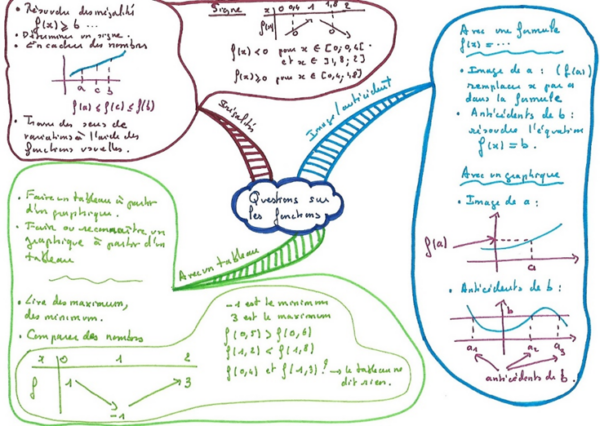 • Résoudre des inégalités
f(x) ≥ b ...
• Déterminer un signe.
• Encadrer des nombres
a c b
f(a) ≤ f(c) ≤ f(b)
• Trouver des sens de
variations à l'aide des
fonctions usuelles.
Signe
x 0 0,4 1 1,8 2
f(x) 0 0
f(x) < 0 pour x ∈ [0; 0,4[
et x ∈ ]1,8; 2]
f(x) ≥ 0 pour x ∈ [0,4; 1,8]
Inégalités
Image/antécédent
Questions sur
les fonctions
Avec un tableau
Avec une formule
f(x) = ...
• Image de a : (f(a))
remplacer x par a
dans la formule
• Antécédents de b :
résoudre l'équation
f(x) = b.
Avec un graphique
• Image de a :
f(a)
a
• Antécédents de b :
b
a1 a2 a3
antécédents de b.
• Faire un tableau à partir
d'un graphique.
• Faire ou reconnaître un
graphique à partir d'un
tableau
• Lire des maximum,
des minimum.
• Comparer des nombres
x 0 1 2
f 1 -1 3
-1 est le minimum
3 est le maximum
f(0,5) > f(0,6)
f(1,2) < f(1,8)
f(0,4) et f(1,3) ? → le tableau ne
dit rien.